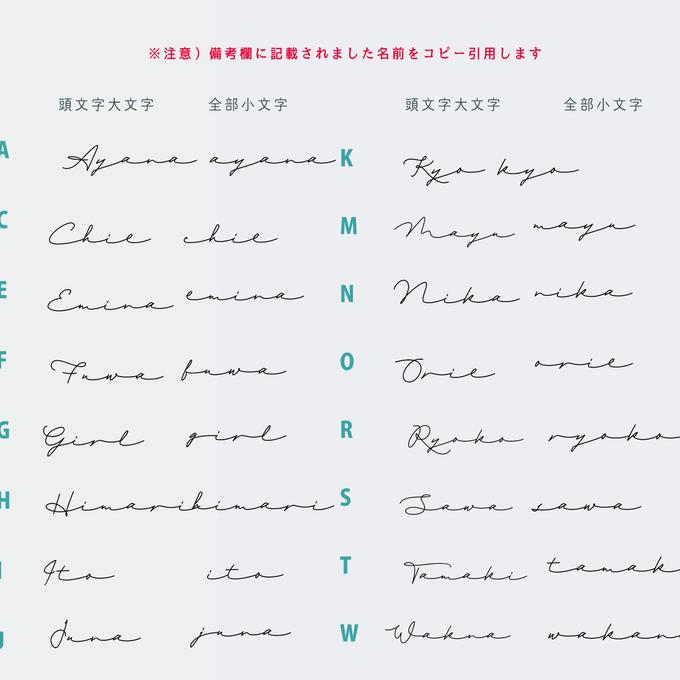 ※注意）備考欄に記載されました名前をコピー引用します
頭文字大文字 全部小文字 頭文字大文字 全部小文字
A Ayana ayana K Kyo kyo
C Chie chie M Mayu mayu
E Emina emina N Nika nika
F Fuwa fuwa O Orie orie
G Girl girl R Ryoko ryoko
H Himari himari S Sawa sawa
I Ito ito T Tamaki tamak
J Juna juna W Wakna wakan